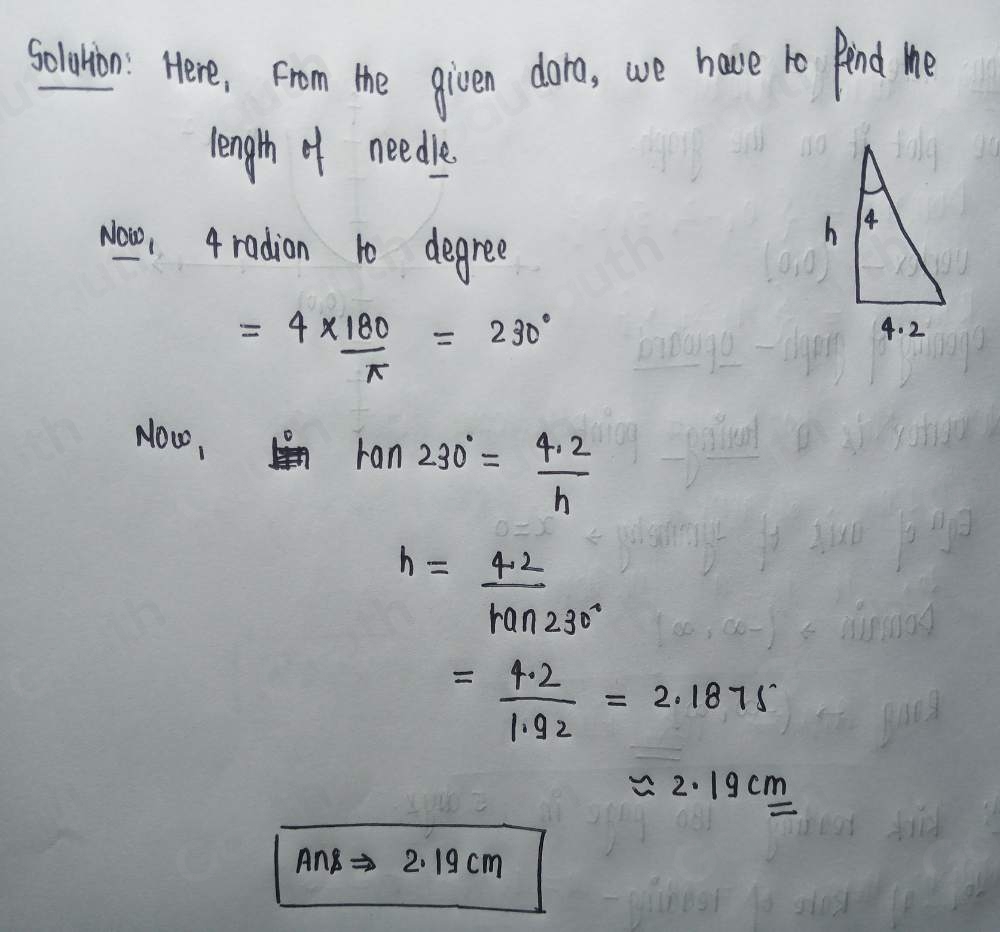 Solution: Here, From the given data, we have to find the
length of needle.
Now, 4 radian to degree
= 4 × 180/π = 230°
h
4
4.2
Now, tan 230° = 4.2/h
h = 4.2/tan 230°
= 4.2/1.92 = 2.1875
≈ 2.19 cm
Ans ⇒ 2.19 cm